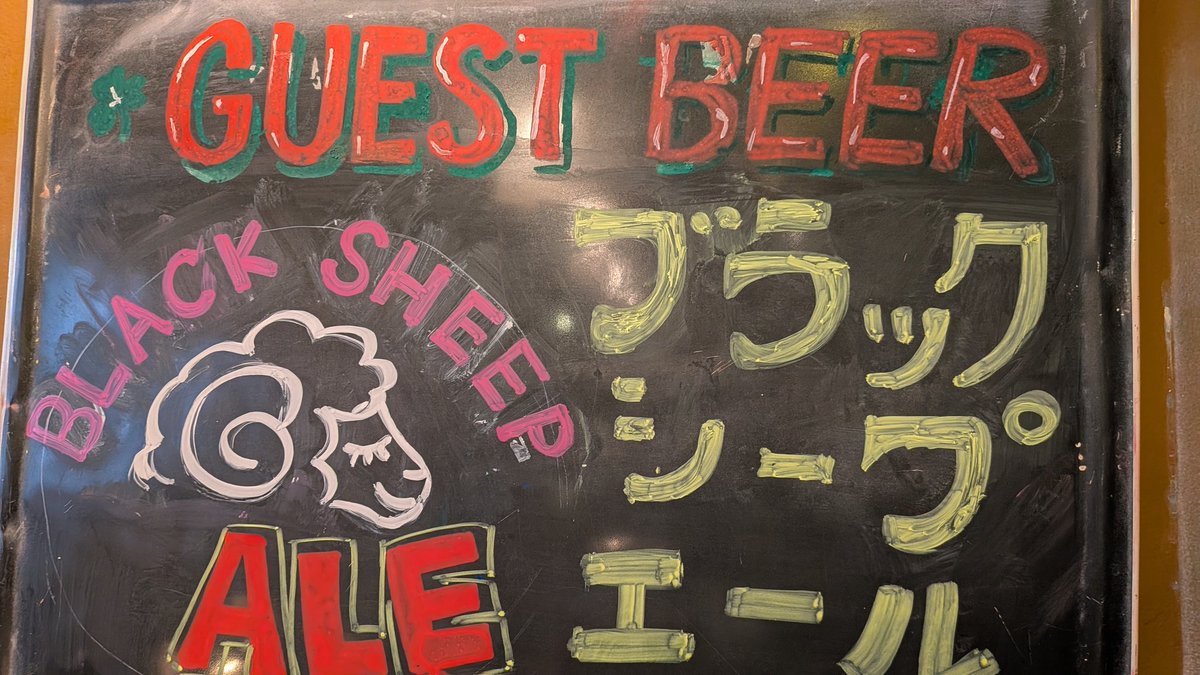 GUEST BEER
BLACK SHEEP
ALE
ブラック
シープ
エール